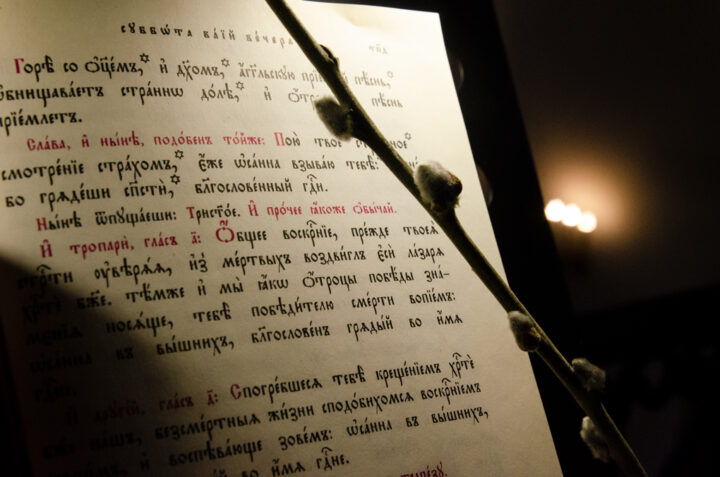 суббѡ́та ва́їй ве́чера
Горѣ̀ со ѻ҆ц҃е́мъ,* и҆ дх҃омъ,* а҆́гг҃льскую пѣ́снь,*
ѡ҆бнища́ваетъ стра́ннѡ до́лѣ,* и҆ пѣ́снь
прїе́млетъ.
Сла́ва, и҆ ны́нѣ, подо́бенъ то́йже: Пою̀ твоѐ
смотре́нїе стра́хомъ,* є҆́же ѡ҆са́нна взыва́ю тебѣ̀:
бо гряде́ши сп҃стѝ,* блгⷭ҇ове́нный гдⷭ҇и.
Ны́нѣ ѿпуща́еши: Трист҃о́е. И҆ про́чее ꙗ҆́коже ѻ҆бы́чай.
И҆ тропарѝ, гла́съ а҃: Ѻ҆́бщее воскр҃нїе, пре́жде твоеѧ̀
стрⷭ҇ти ᲂу҆вѣрѧ́ѧ, и҆з̾ ме́ртвыхъ воздви́глъ є҆сѝ ла́зарѧ
хрⷭ҇тѐ бж҃е. тѣ́мже и҆ мы̀ ꙗ҆́кѡ ѻ҆́троцы побѣ́ды зна́-
менїѧ носѧ́ще, тебѣ̀ побѣди́телю сме́рти вопїе́мъ:
ѡ҆са́нна въ вы́шнихъ, блгⷭ҇ове́нъ грѧды́й во и҆́мѧ
гдⷭ҇не.
И҆ дрꙋгі́й, гла́съ д҃: Спогре́бшесѧ тебѣ̀ креще́нїемъ хрⷭ҇тѐ
бж҃е на́шъ, безсме́ртныѧ жи́зни сподо́бихомсѧ воскр҃нїемъ
и҆ воспѣва́юще зове́мъ: ѡ҆са́нна въ вы́шнихъ,
во и҆́мѧ гдⷭ҇не.